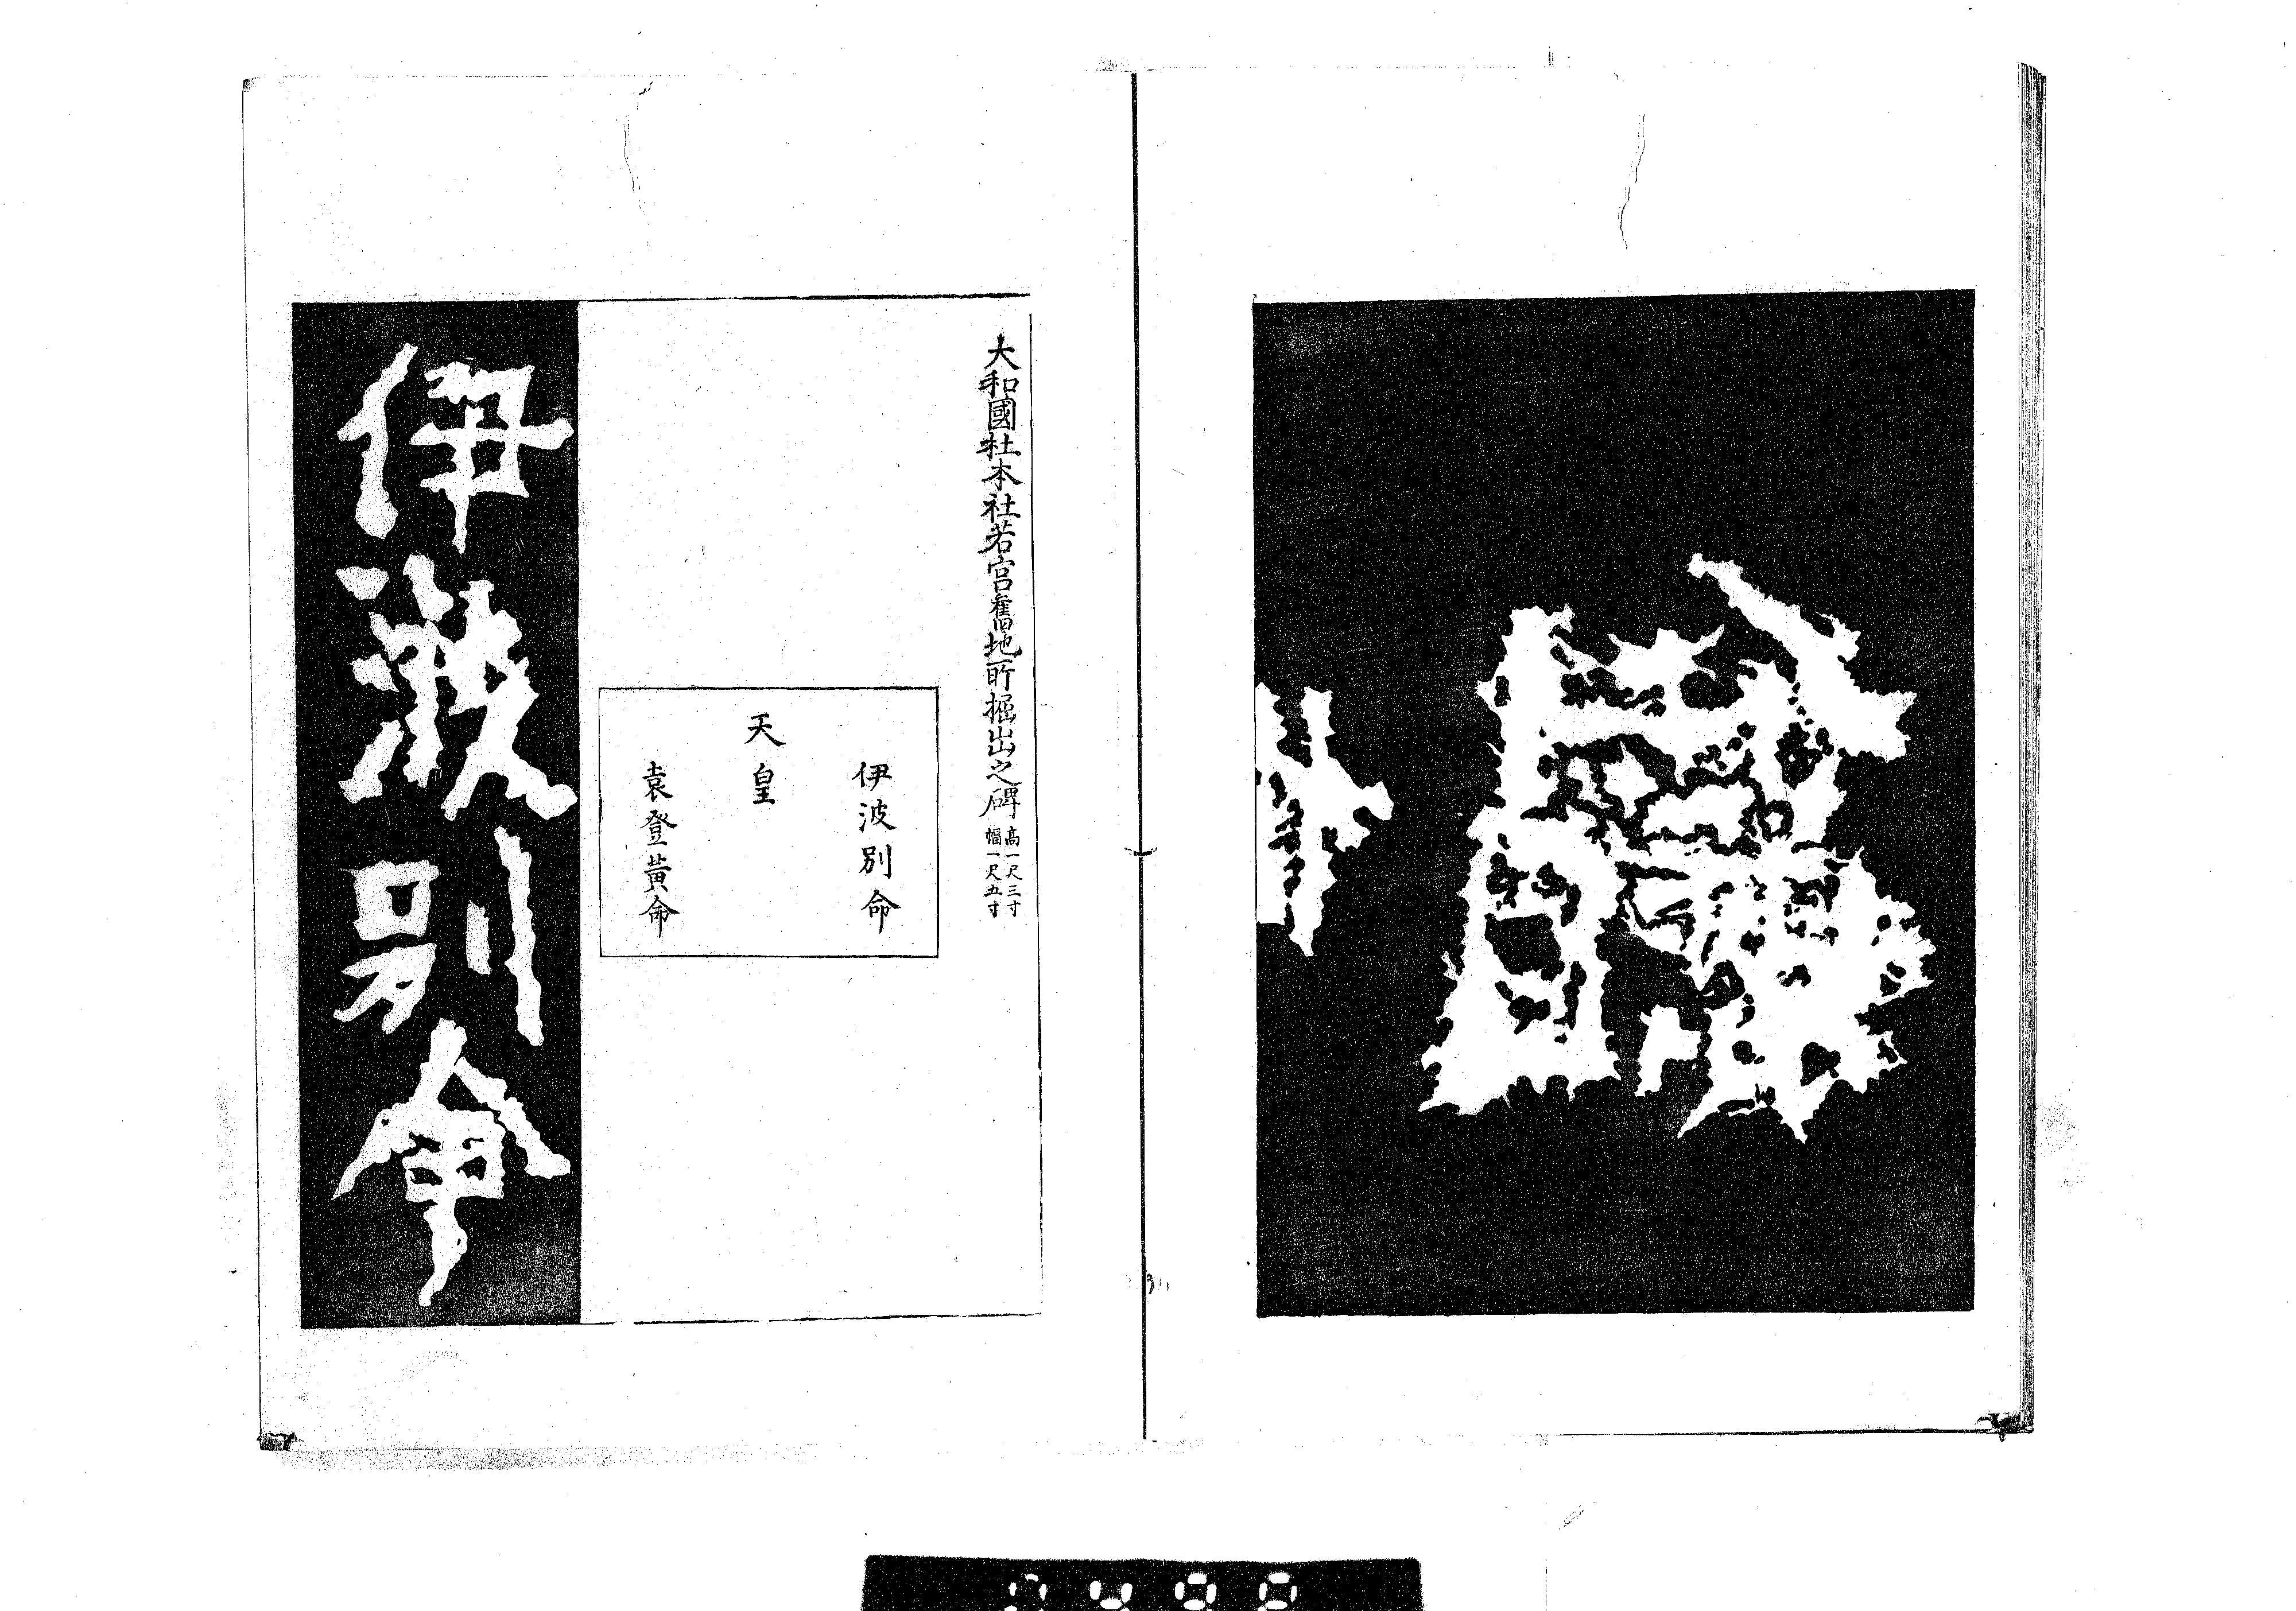 大和國杜本社若宮舊地所掘出之碑
高一尺三寸
幅一尺五寸
伊波別命
天皇
袁登黄命
伊波別命